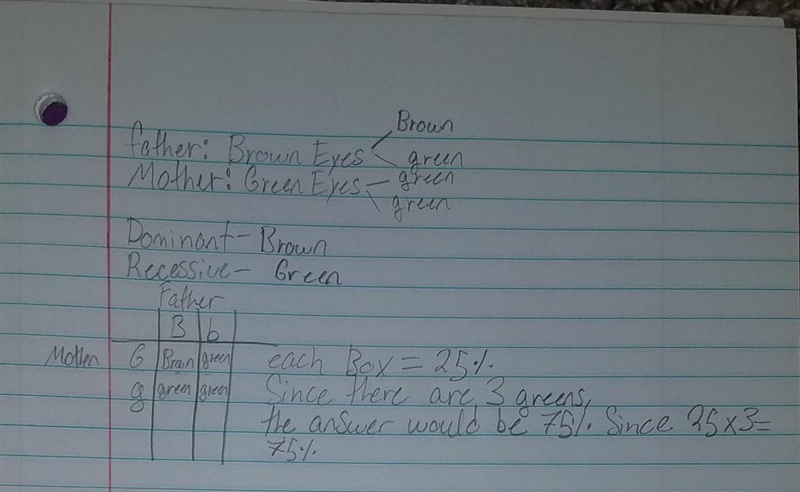 Brown
father: Brown Eyes green
Mother: Green Eyes - green
green
Dominant - Brown
Recessive - Green
Father
B b
Mother G Brown green each Box = 25%.
g green green Since there are 3 greens,
the answer would be 75%. Since 25x3=
75%.